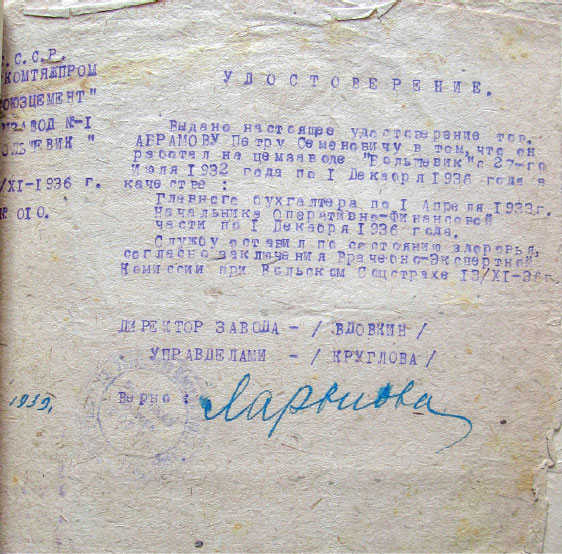 С.С.С.Р.
КОМТЯЖПРОМ
СОЮЗЦЕМЕНТ"
ЗАВОД №-I
ОЛЬШЕВИК"
/XI-1936 г.
№ 010.
УДОСТОВЕРЕНИЕ.
Выдано настоящее удостоверение тов.
АБРАМОВУ Петру Семеновичу в том, что он
работал на цемзаводе "Большевик" с 27-го
Июля 1932 года по I Декабря 1936 года в
качестве :
Главного бухгалтера по I Апреля 1933г.
Начальника Оперативно-Финансовой
части по I Декабря 1936 года.
Службу оставил по состоянию здоровья,
согласно заключения Врачебно-Экспертной
Комиссии при Вольском Соцстрахе 13/XI-36г.
ДИРЕКТОР ЗАВОДА - / ВДОВКИН /
УПРАВДЕЛАМИ - / КРУГЛОВА /
1939.
Верно : Ларионова